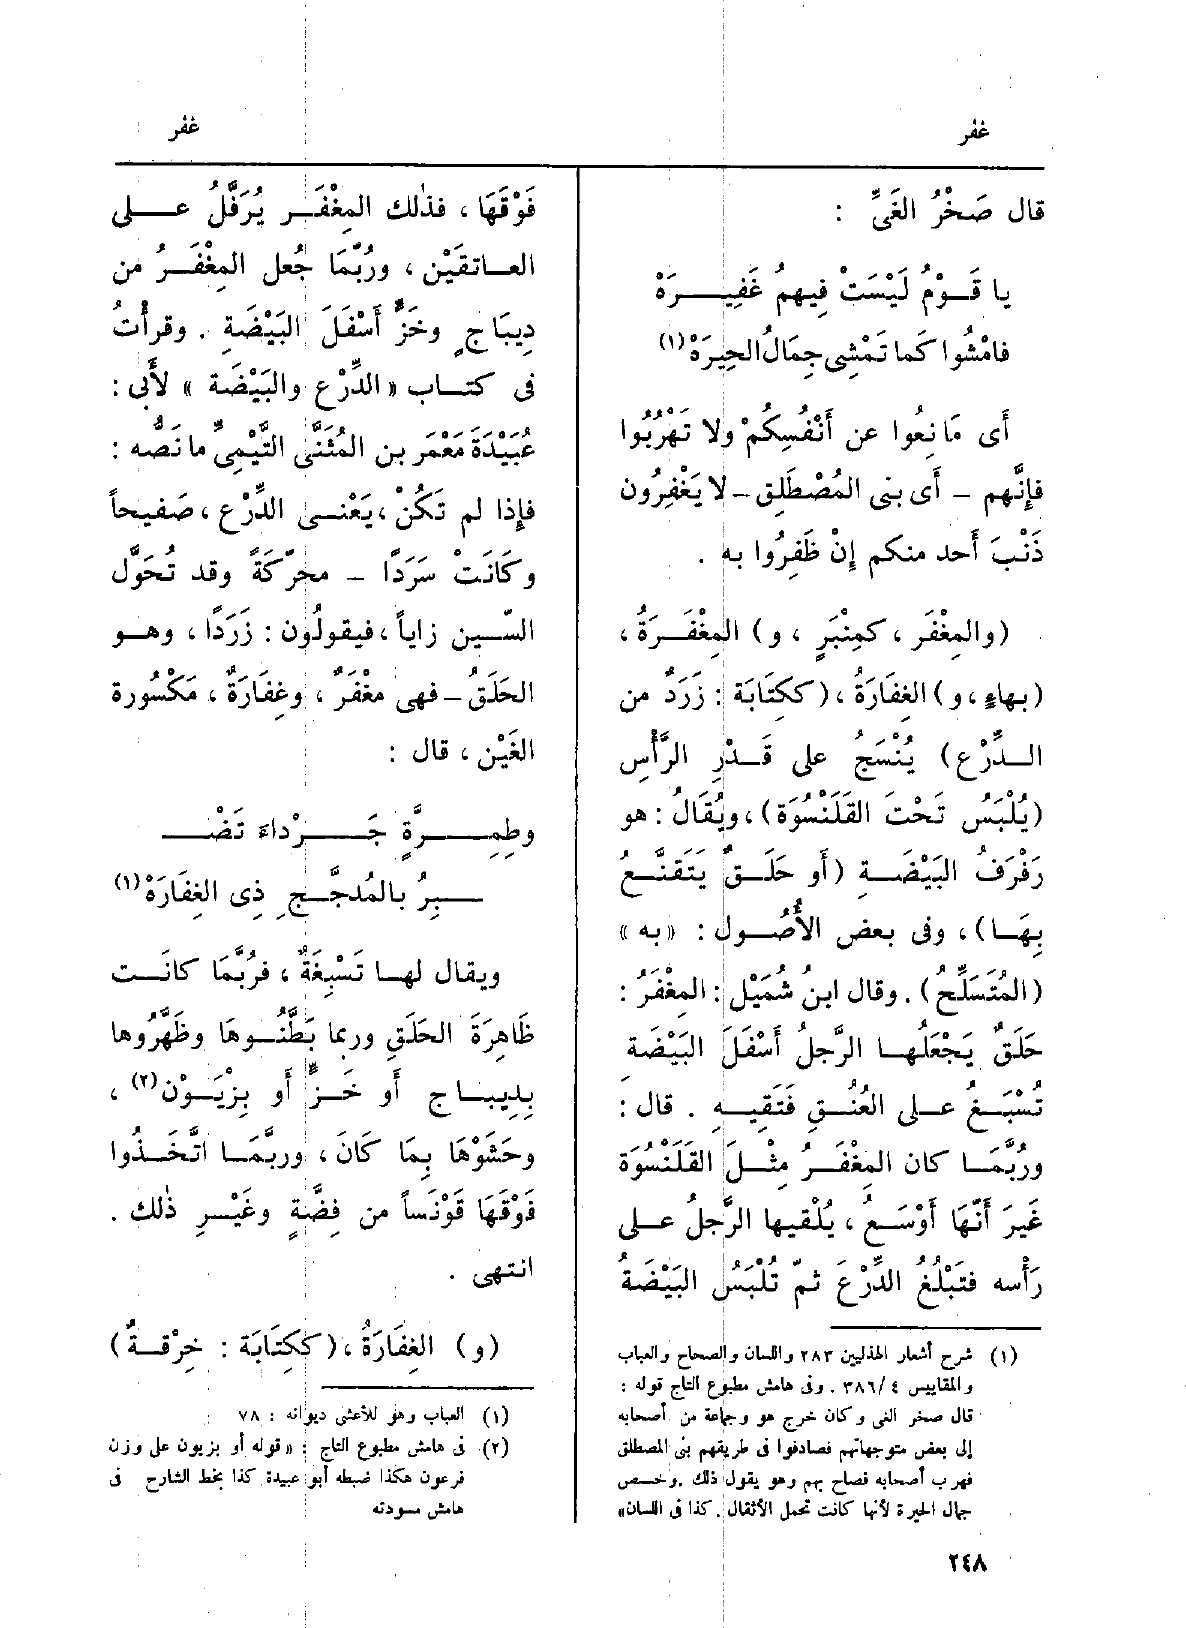 غفر
غفر
قال صَخْرُ الغَىِّ :
يا قَوْمُ لَيْسَتْ فِيهمُ غَفِيرَهْ
فامْشُوا كما تَمْشِى جِمَالُ الحِيرَهْ (١)
أى مَانِعُوا عن أَنْفُسِكُمْ ولا تَهْرُبُوا
فإِنَّهم – أى بنى المُصْطَلِق – لا يَغْفِرُون
ذَنْبَ أحد منكم إِنْ ظَفِرُوا به .
(والمِغْفَر ، كمِنْبَرٍ ، و) المِغْفَرَةُ ،
(بهاءٍ ، و) الغِفَارَةُ ، (ككِتَابَة : زَرَدٌ من
الدِّرْع) يُنْسَجُ على قَدْرِ الرَّأْسِ
(يُلْبَسُ تَحْتَ القَلَنْسُوَة) ، ويُقَالُ : هو
رَفْرَفُ البَيْضَةِ (أو حَلَقٌ يَتَقَنَّعُ
بِهَا) ، وفى بعض الأُصُول : «به»
(المُتَسَلِّحُ) . وقال ابنُ شُمَيْل : المِغْفَرُ :
حَلَقٌ يَجْعَلُها الرَّجلُ أَسْفَلَ البَيْضَةِ
تُسْبَغُ على العُنُقِ فَتَقِيهِ . قال :
ورُبَّمَا كان المِغْفَرُ مِثْلَ القَلَنْسُوَة
غَيرَ أَنّهَا أَوْسَعُ ، يُلْقيها الرَّجلُ على
رَأْسه فتَبْلُغُ الدِّرْعَ ثمّ تُلْبَسُ البَيْضَةُ
(١) شرح أشعار الهذليين ٢٨٣ واللسان والصحاح والعباب
والمقاييس ٤ /٣٨٦ . وفى هامش مطبوع التاج قوله :
قال صخر الغى وكان خرج هو وجماعة من أصحابه
إلى بعض متوجهاتهم فصادفوا فى طريقهم بنى المصطلق
فهرب أصحابه فصاح بهم وهو يقول ذلك . وخص
جمال الحيرة لأنها كانت تحمل الأثقال . كذا فى اللسان»
فَوْقَهَا ، فذلك المِغْفَر يُرَفَّلُ على
العاتقَيْن ، ورُبَّمَا جُعل المِغْفَرُ من
دِيبَاجٍ وخَزٍّ أَسْفَلَ البَيْضَةِ . وقرأْتُ
فى كتاب «الدِّرْع والبَيْضَة» لأَبى :
عُبَيْدَةَ مَعْمَر بن المُثَنَّى التَّيْمِىِّ ما نَصُّه :
فإِذا لم تَكُنْ ، يَعْنى الدِّرْع ، صَفيحاً
وكَانَتْ سَرَدًا – محرّكَةً وقد تُحَوَّل
السّين زاياً ، فيقولُون : زَرَدًا ، وهو
الحَلَقُ – فهى مغْفَرٌ ، وغِفَارَةٌ ، مَكْسُورة
الغَيْن ، قال :
وطِمِرَّةٍ جَرْداءَ تَضْـ
ـبِرُ بالمُدجَّجِ ذِى الغِفَارَهْ (١)
ويقال لها تَسْبِغَةٌ ، فرُبَّمَا كانَت
ظَاهِرَةَ الحَلَقِ وربما بَطَّنُوهَا وظَهَّرُوها
بِدِيباج أو خَزٍّ أو بِزْيَوْن (٢) ،
وحَشَوْهَا بِمَا كَانَ ، وربَّمَا اتَّخَذُوا
فَوْقَهَا قَوْنَساً من فِضَّةٍ وغَيْرِ ذٰلك .
انتهى .
(و) الغِفَارَةُ ، (ككِتَابَة : خِرْقَةٌ)
(١) العباب وهو للأعشى ديوانه : ٧٨
(٢) فى هامش مطبوع التاج : «قوله أو بزيون على وزن
فرعون هكذا ضبطه أبو عبيدة كذا بخط الشارح فى
هامش مسودته
٢٤٨